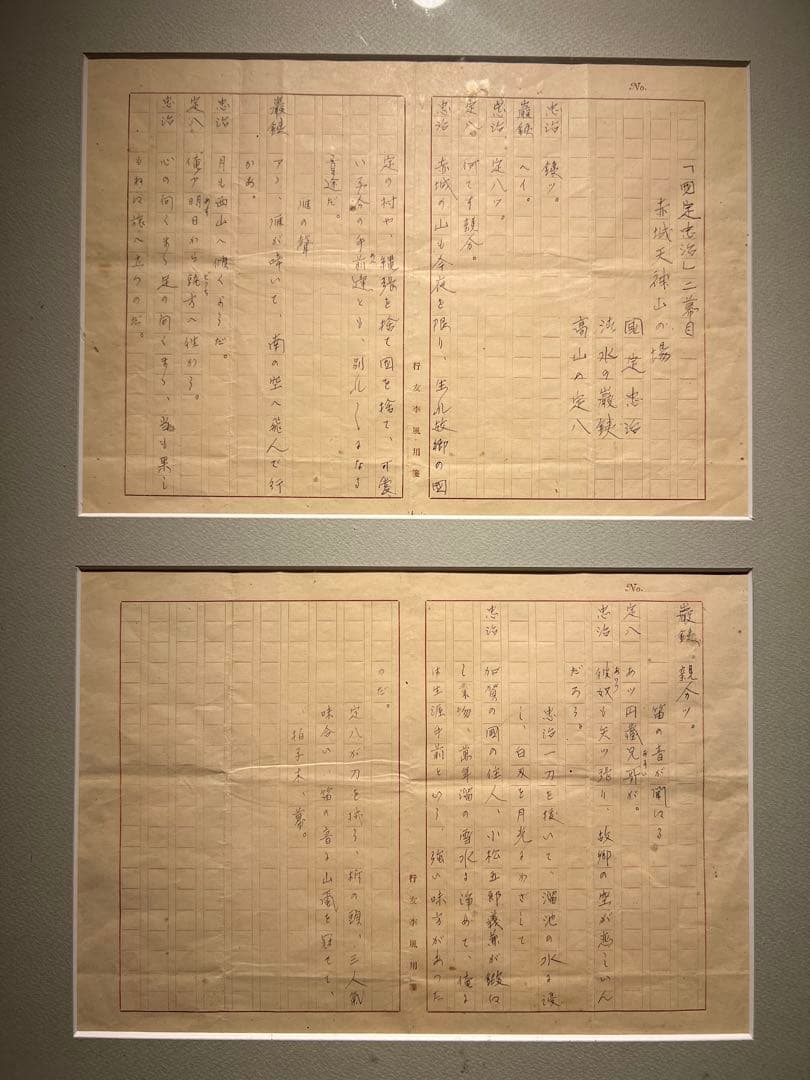 No.
「国定忠治」二幕目
赤城天神山の場
國定忠治
清水の巌鉄
高山の定八
忠治 鉄ッ。
巌鉄 ヘイ。
忠治 定八ッ。
定八 何です親分。
忠治 赤城の山も今夜を限り、生れ故郷の国
行友李風用箋
定の村や、縄張を捨て国を捨て、可愛
い子分の手前達とも、別れ〳〵になる
首途だ。
雁の聲
巌鉄 アヽ、雁が啼いて、南の空へ飛んで行
かあ。
忠治 月も西山へ傾くようだ。
定八 俺ァ明日から
どっち
へ行かう。
忠治 心の向くまゝ足の向くまゝ、当も果し
もねえ旅へ立つのだ。
No.
巌鉄 親分ッ。
笛の音が聞ゆる
定八 あッ円蔵兄哥が。
あにい
忠治 彼奴も矢ッ張り、故郷の空が恋しいん
あいつ
だろう。
忠治一刀を抜いて、溜池の水に浸
し、白刃を月光にかざして
忠治 加賀の國の住人、小松五郎義兼が鍛へ
し業物、萬年溜の雪水に浄めて、俺に
は生涯手前といふ、強い味方があった
行友李風用箋
のだ。
定八が刀を拭う、柝の頭、三人氣
味合い、笛の音に山颪を冠せて、
拍子木、幕。